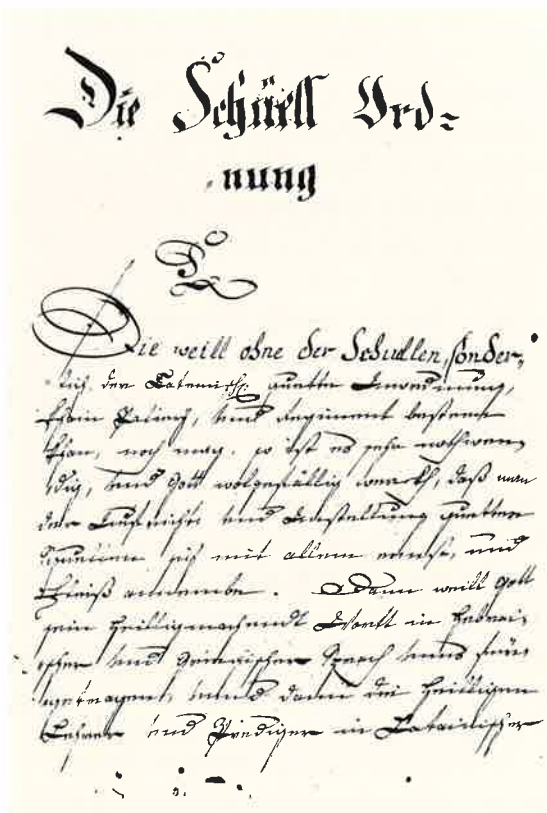 Die Schüell Ord=
nung
Die weill ohne der Schuellen, sonder,
lich der Lateinisch: guette Anordnung,
khein Policey, unnd Regiment bestehen
khan, noch mag, so ist es sehr nothwen,
dig, unnd Gott wolgefällig werckh, daß man
der Auffricht: unnd Anstellung guetter
Schuellen sich mit allem ernst, und
Fleiß annembe. Dann weill Gott
sein heilligmachendt Wortt in Hebrei,
scher unnd Griechischer Sprach unns
unnd dann die heilligen
Lehrer unnd Prediger in Lateinischer